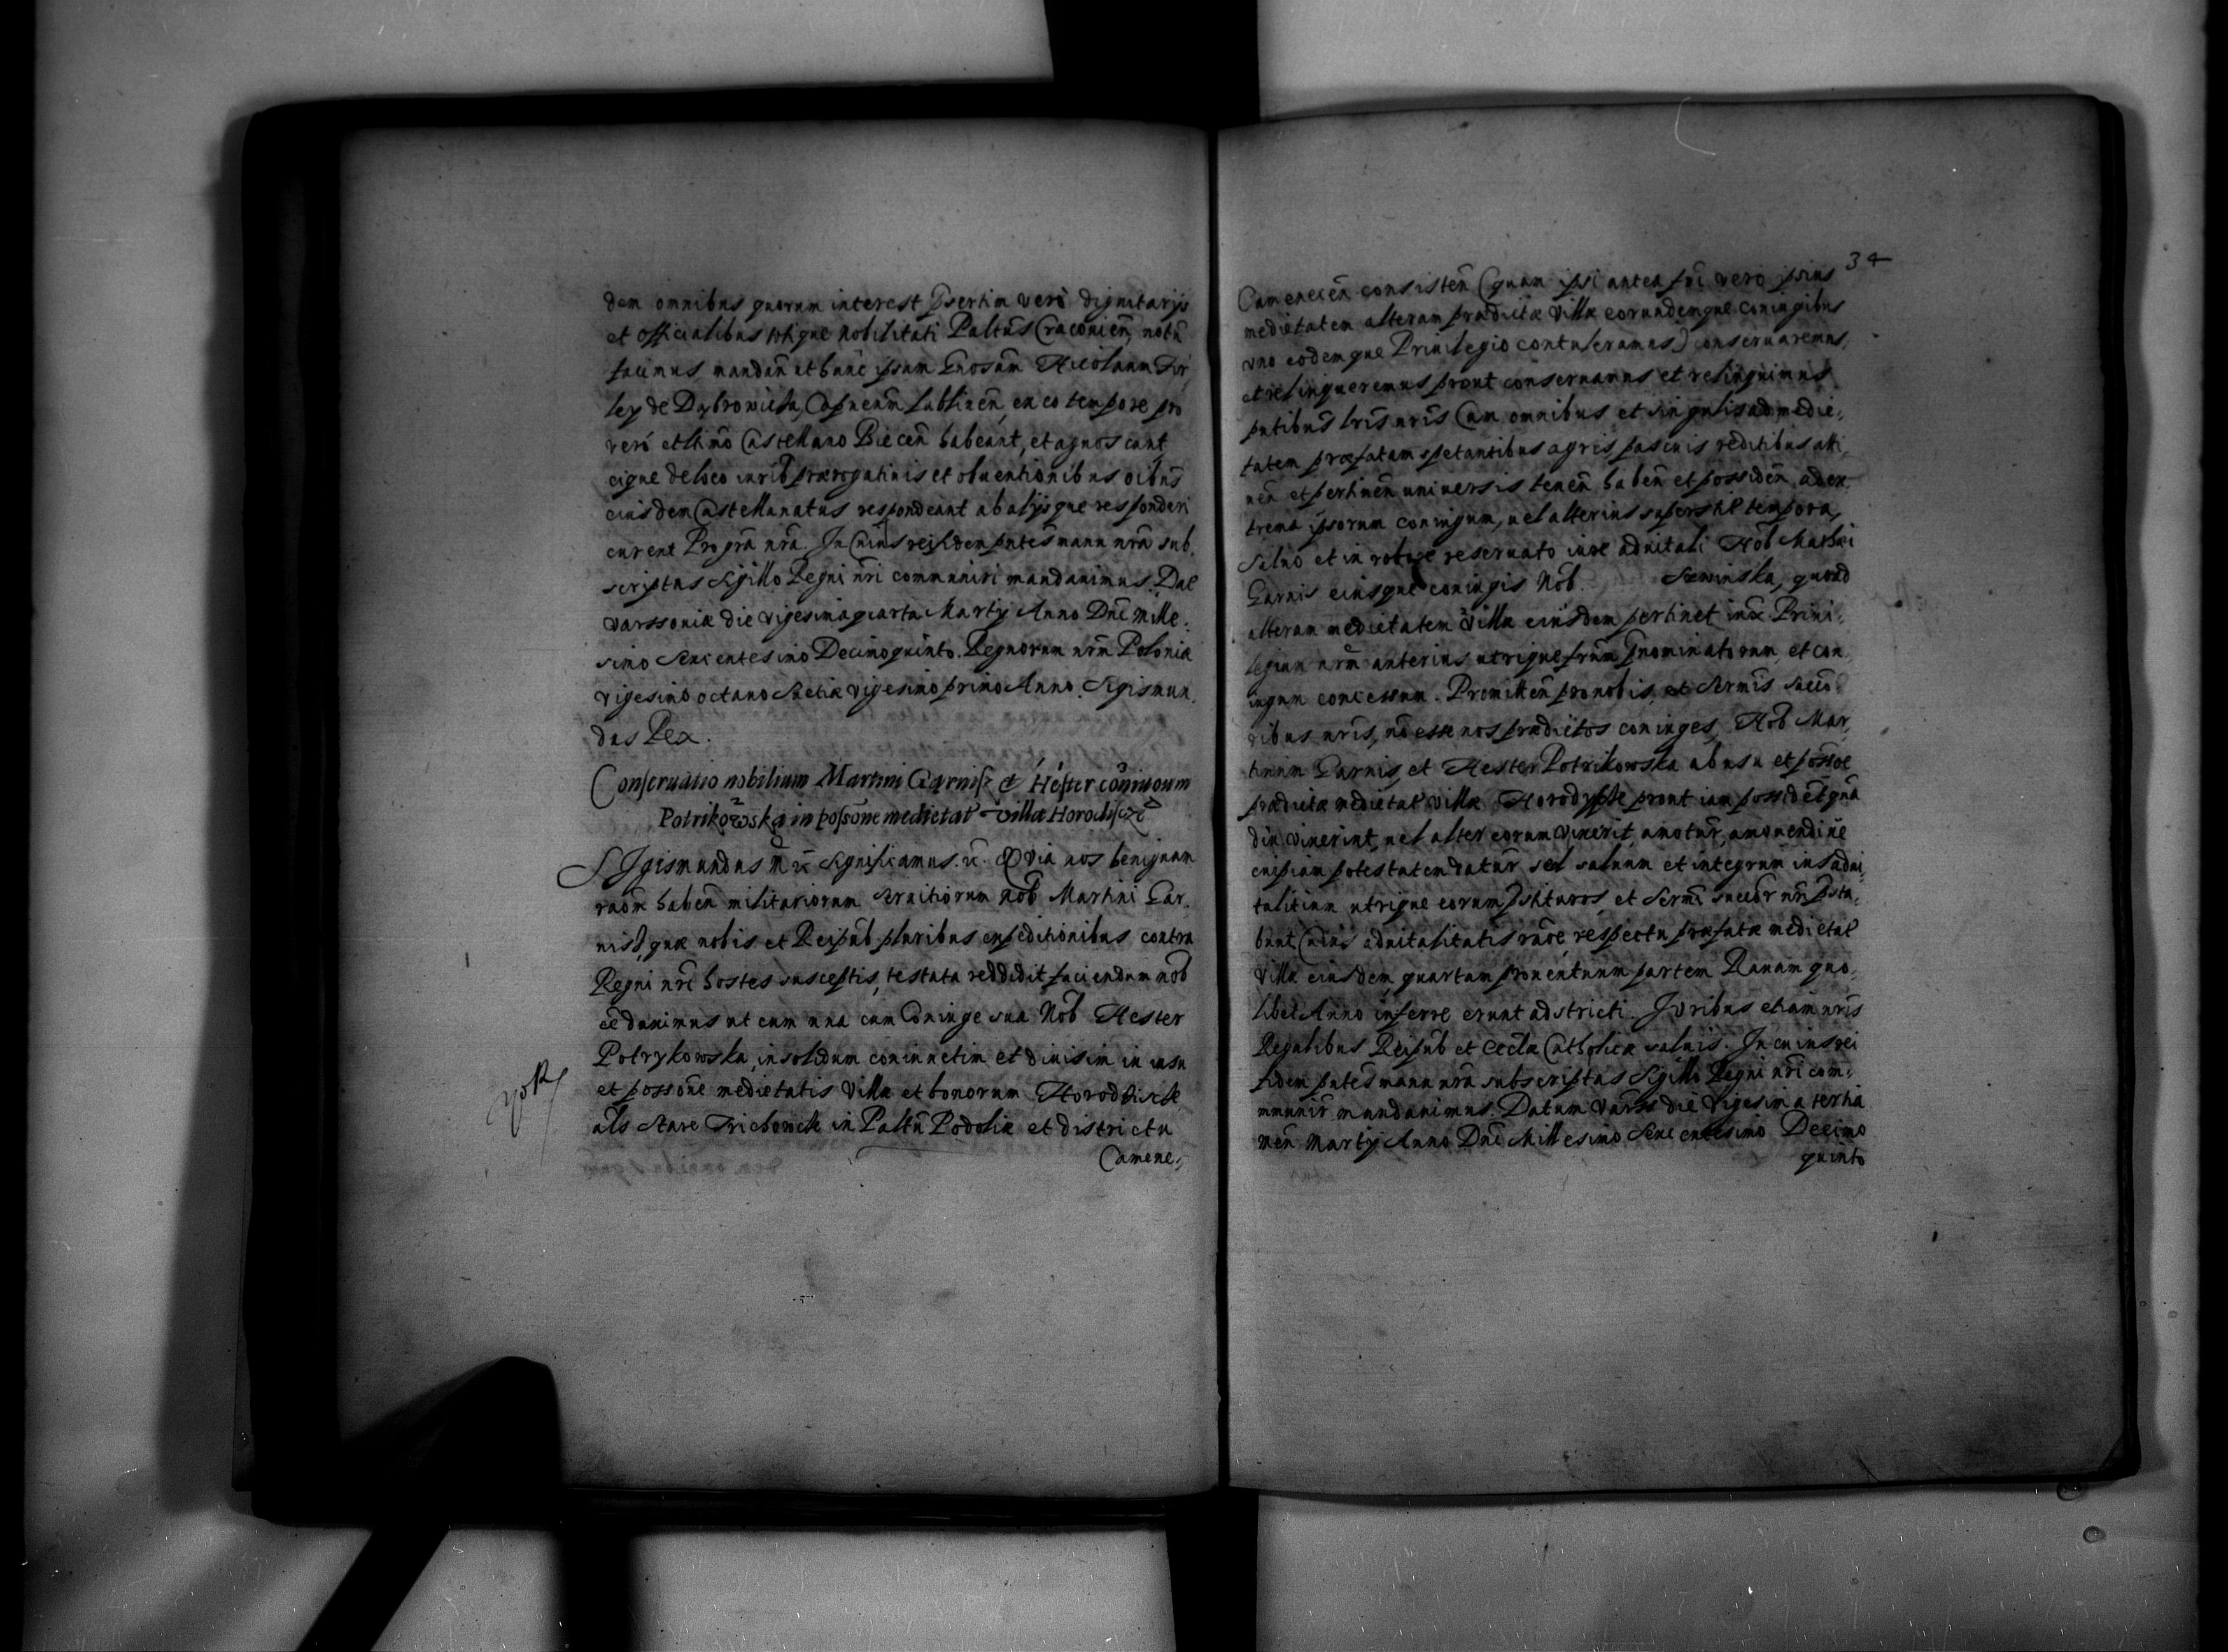 dem omnibus quorum interest p̄sertim verò dignitarijs
et officialibus totique nobilitati Paltūs Craconień, notū
facimus mandań ut hunc ipsum Gnosum Nicolaum Fir
ley de Dąbrowicza, Capneum Lublineń, ex eo tempore pro
verò et ltimo Castellano Bieceń habeant, et agnoscant
eique de loco iurib prærogatiuis et obuentionibus oibus
eiusdem Castellanatus respondeant ab alijsque responderi
curent Pro grā nrā. In Cuius rei fidem pntēs manu nrā sub,
scriptas Sigillo Regni nrī communiri mandauimus, Dat
Varssouiæ die vigesima quarta Martij Anno Dnī Mille:
simo Sexcentesimo Decimo quinto. Regnorum nrm̄ Poloniæ
vigesimo octauo Suetiæ vigesimo primo Anno. Sigismun,
dus Rex.
Conseruatio nobilium Martini Garnisz et Hester coniugum
Potrikowska in possōne medietat villæ Horodiscze
SJgismundus etc Significamus. etc. Quia nos benignam
raōm habeń militariorum seruitiorum Nob Martini Gar,
nisz, quæ nobis et Reipub pluribus expeditionibus contra
Regni nrī hostes susceptis, testata reddidit faciendum nob
eē duximus ut eum una cum Coniuge sua Nob Hester
Potrykowska, in solidum coniunctim et diuisim in usu
et possōne medietatis Villæ et bonorum Horodiscze
als Stare in Paltū Podoliæ et districtu
Camene:
34
Cameneceń consisteń (quam ipsi antea verò prius
medietatem alteram prædictæ Villæ eorundemque coniugibus
vno eodemque Priuilegio contuleramus) conseruaremus,
et relinqueremus prout conseruamus et relinquimus
pntibus lris nris Cum omnibus et singulis ad medie,
tatem præfatam spetantibus agris pascuis reditibus atti,
neń et pertineń uniuersis teneń habeń et possideń, ad ex
trema ipsorum coniugum, uel alterius superstit tempora,
Saluo et in robore reseruato iure aduitali Nob Mathæi
Garnis eiusque coniugis Nob. Szwinska, quoad
alteram medietatem Villæ eiusdem pertinet iuxa Priui,
legium nrm anterius utrique nominatorum, et con
iugum concessum. Promitteń pro nobis, et Sermis Succō
ribus nris, nō esse nos prædictos coniuges, Nob Mar,
tinum Garnis, et Hester Potrikowska ab usu et possōe
prædictæ medietat villæ Horodyscze prout iam possident qua
diu vixerint, uel alter eorum vixerit, amoturos, amouendiue
cuipiam potestatem daturos sed saluum et integrum ius adui,
talitium utrique eorum seruaturos, et Sermi succōr nri psta,
bunt Cuius aduitalitatis raōe respectu præfatæ medietat
Villæ eiusdem quartam prouentuum partem Rauam quo,
libet Anno inferre erunt adstricti. Juribus etiam nris
Regalibus Reipub et Eccla Catholicæ saluis. In cuius rei
fidem pntes manu nra subscriptas Sigillo Regni nri com:
muniri mandauimus. Datum Varss die Vigesima tertia
Men Martij Anno Dni Millesimo Sexcentesimo Decimo
quinto